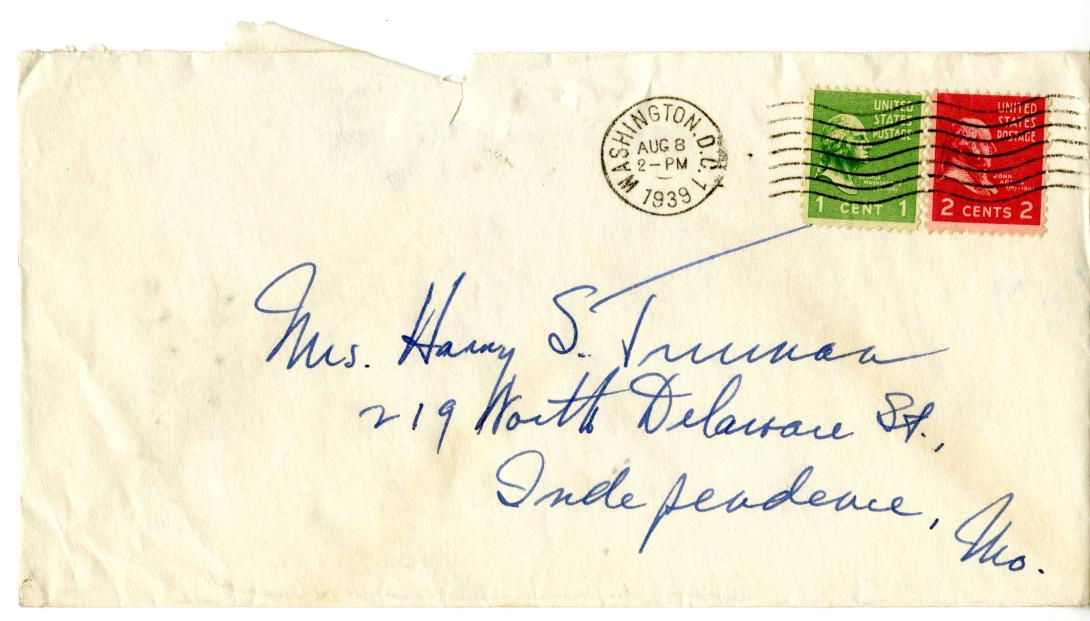 WASHINGTON, D.C. 1
AUG 8
2-PM
1939
UNITED
STATES
POSTAGE
GEORGE
WASHINGTON
1 CENT 1
UNITED
STATES
POSTAGE
JOHN
ADAMS
2 CENTS 2
Mrs. Harry S. Truman
219 North Delaware St.,
Independence, Mo.